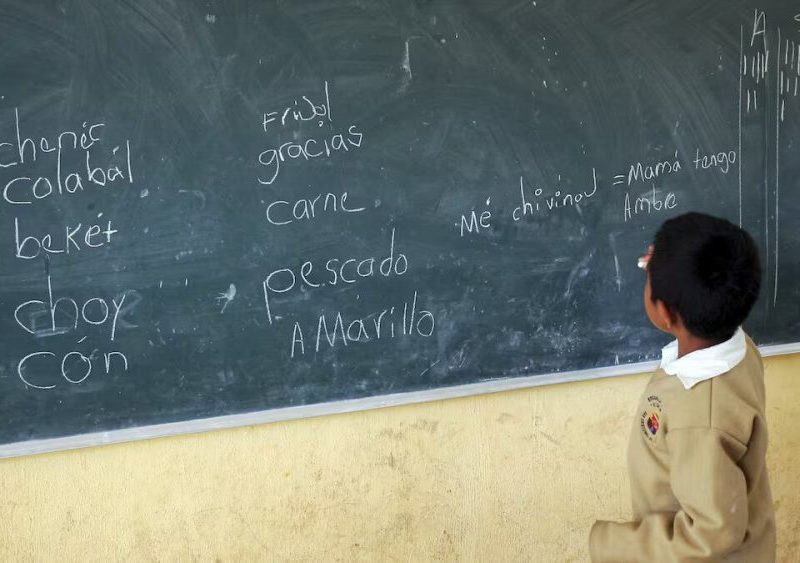 chenéc
colabál
bekét
choy
cón
Frijol
gracias
carne
pescado
AMArillo
Mé chivinoj =Mamá tengo
Ambre
A